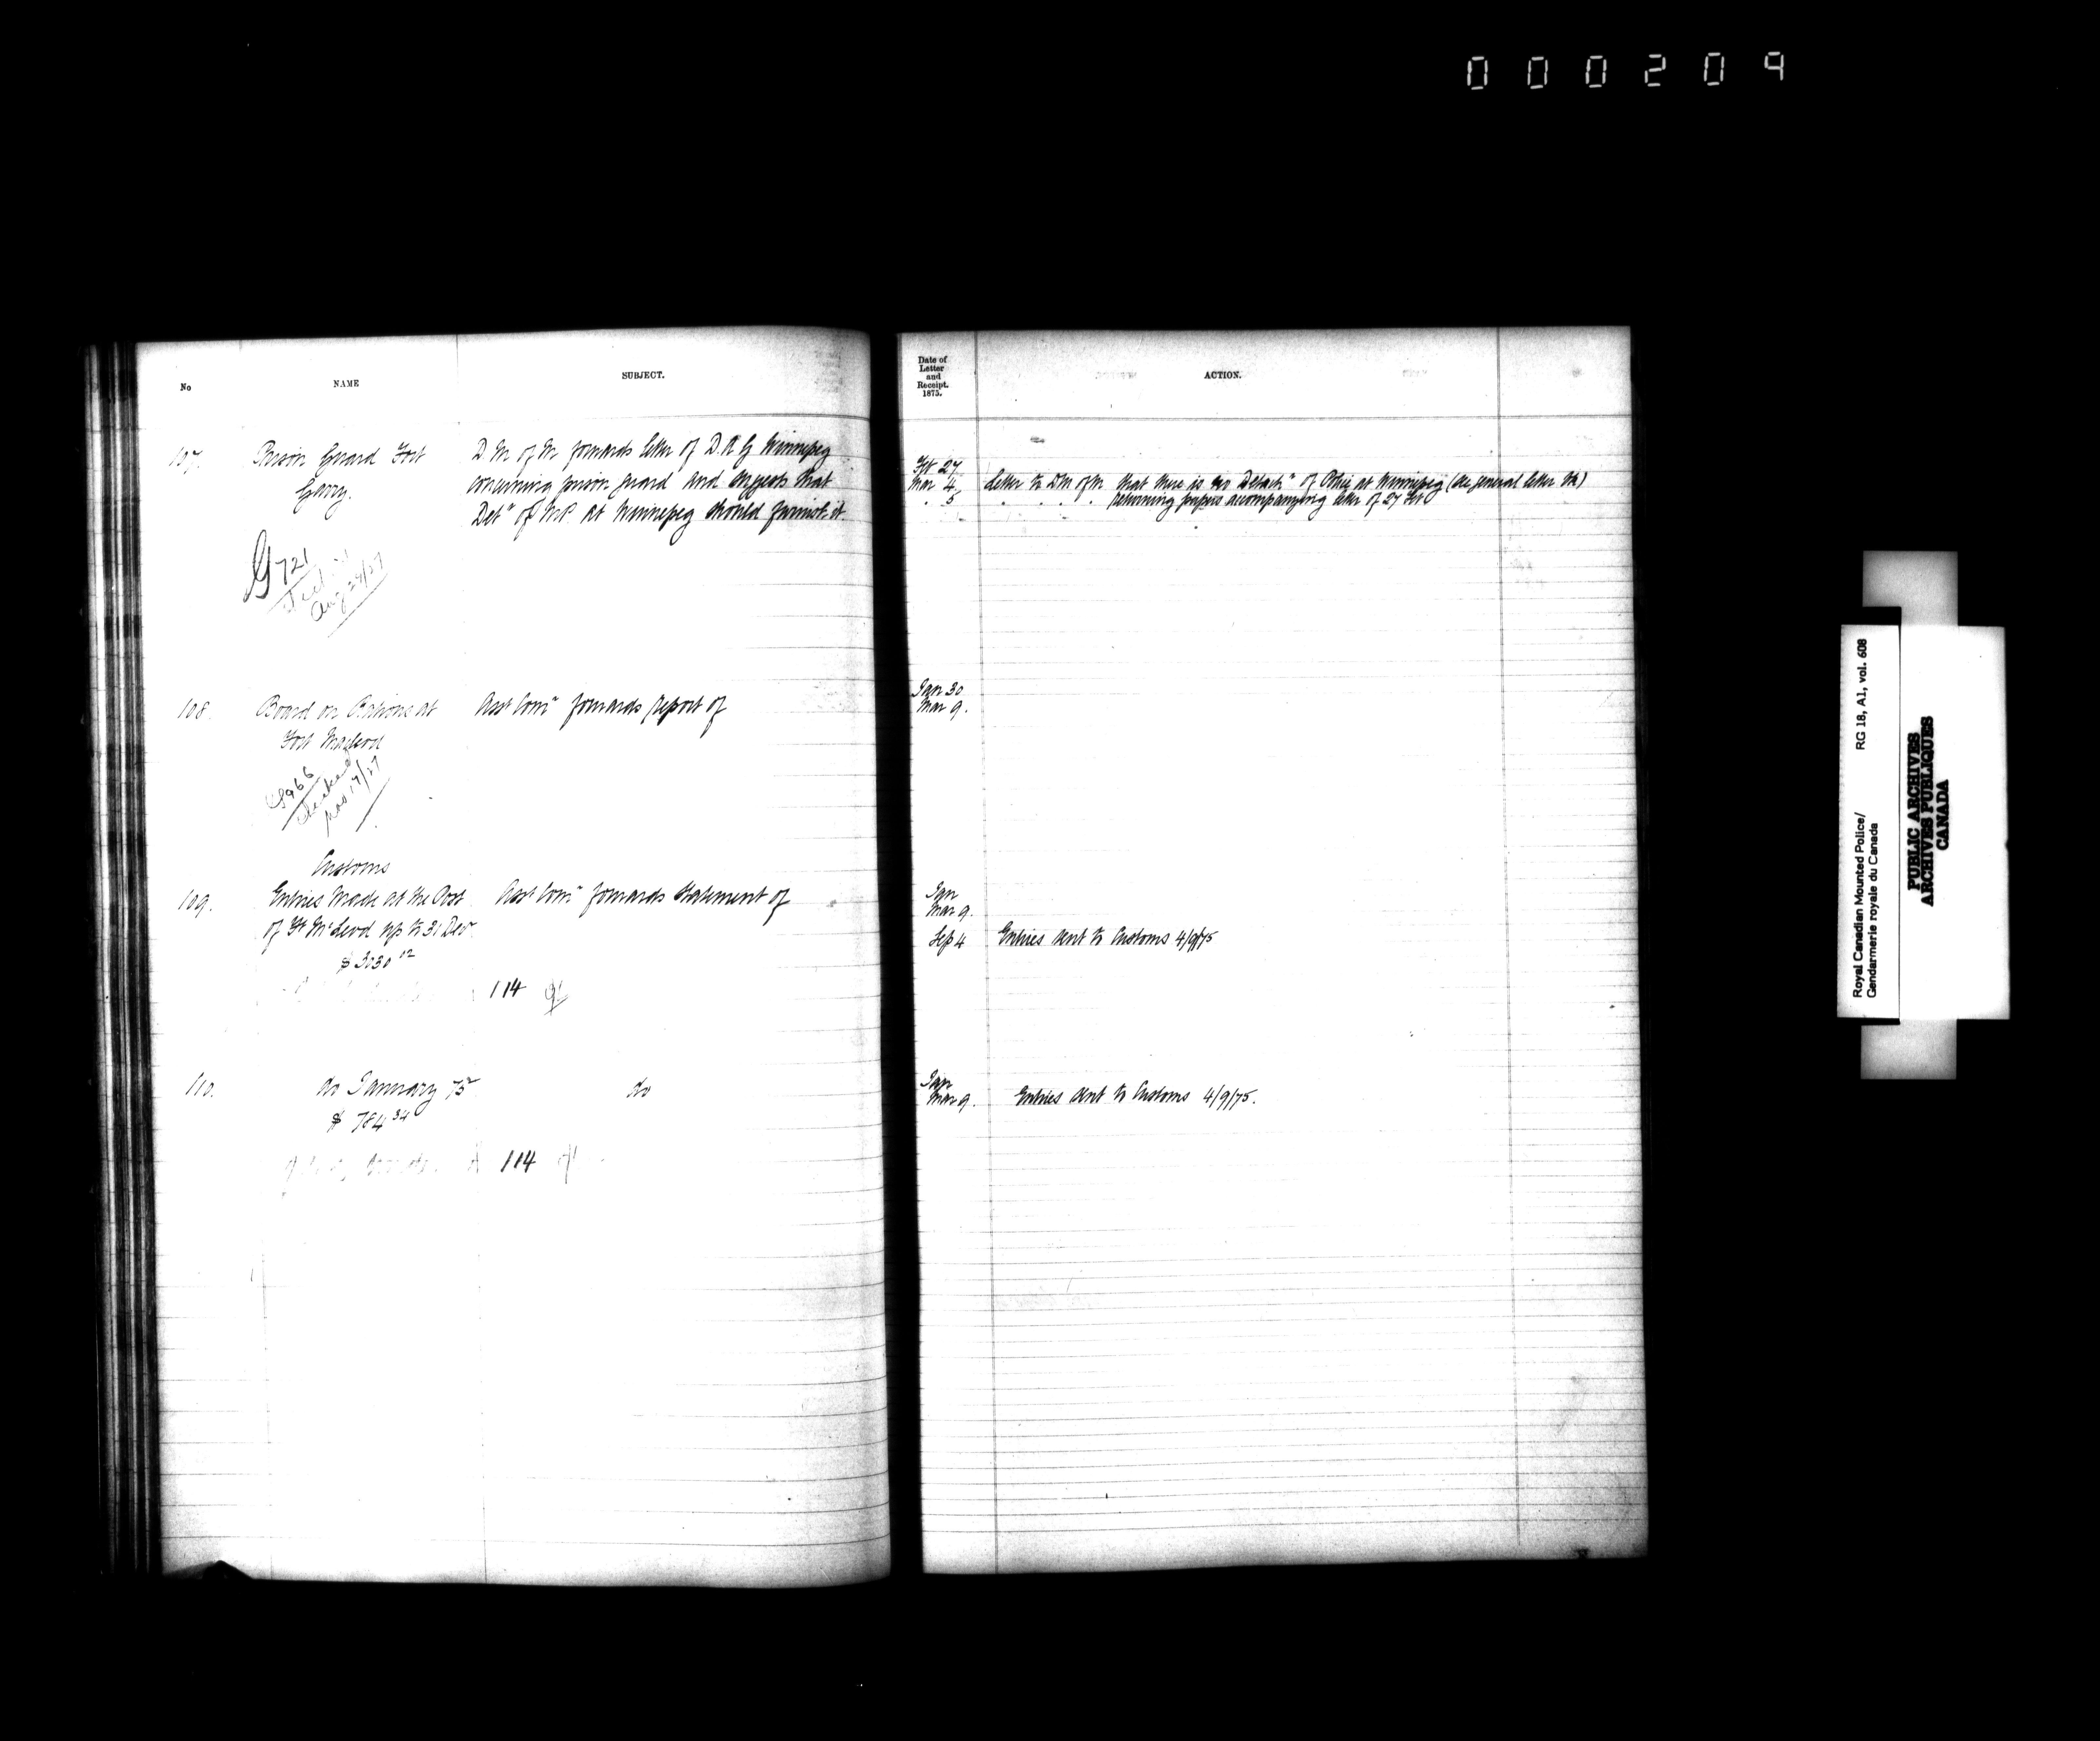 000209
No
NAME
SUBJECT.
Date of
Letter
and
Receipt.
1875.
ACTION.
107.
Prison Guard Fort
Garry.
D M of M forwards letter of D.A.G Winnipeg
concerning prison guard and suggests that
Detn of M.P. at Winnipeg should furnish it.
Feb 27
Mar 4.
" 5
Letter to DM of M that there is no Detachn of Police at Winnipeg (See general letter Bk)
" " " " returning papers accompanying letter of 27 Feb
G 721
Aug 24/27
108.
Board on Rations at
Fort Macleod
Asst Comr forwards report of
Jan 30
Mar 9.
checked
109.
Customs
Entries made at the Post
of Ft McLeod up to 31 Decr
$ 3030 12
Asst Comr forwards statement of
Jan
Mar 9.
Sep 4
Entries sent to Customs 4/9/75
114
110.
do January 75
$ 784 34
do
Jan
Mar 9.
Entries sent to Customs 4/9/75.
114
Royal Canadian Mounted Police/
Gendarmerie royale du Canada
RG 18, A1, vol. 608
PUBLIC ARCHIVES
ARCHIVES PUBLIQUES
CANADA